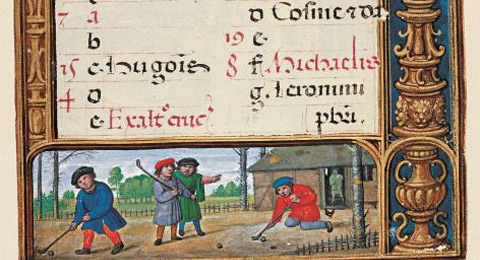 7 a
b
15 c Hugois
4 d
e Exalt° cruc?
d Cosme ⁊ da
19 e
8 f Michaelis
g Ieronimi
pbri.